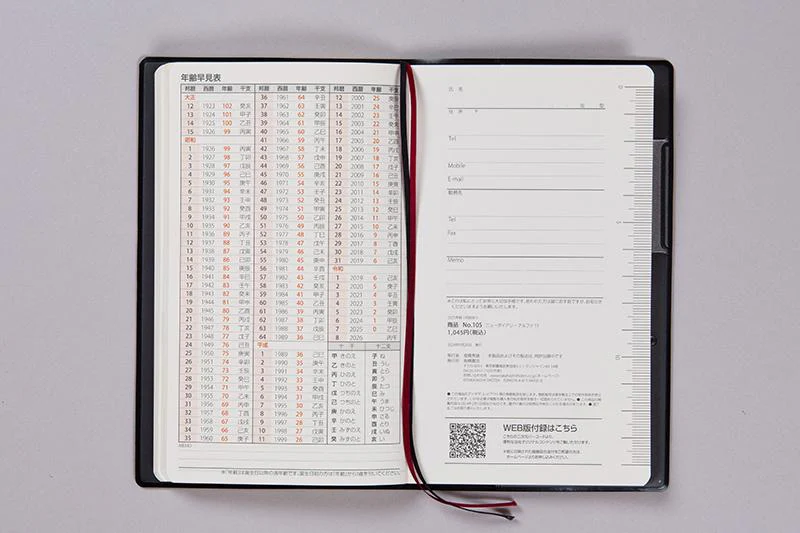 年齢早見表
邦暦 西暦 年齢 干支
大正
12 1923 102 癸亥
13 1924 101 甲子
14 1925 100 乙丑
15 1926 99 丙寅
昭和
1 1926 99 丙寅
2 1927 98 丁卯
3 1928 97 戊辰
4 1929 96 己巳
5 1930 95 庚午
6 1931 94 辛未
7 1932 93 壬申
8 1933 92 癸酉
9 1934 91 甲戌
10 1935 90 乙亥
11 1936 89 丙子
12 1937 88 丁丑
13 1938 87 戊寅
14 1939 86 己卯
15 1940 85 庚辰
16 1941 84 辛巳
17 1942 83 壬午
18 1943 82 癸未
19 1944 81 甲申
20 1945 80 乙酉
21 1946 79 丙戌
22 1947 78 丁亥
23 1948 77 戊子
24 1949 76 己丑
25 1950 75 庚寅
26 1951 74 辛卯
27 1952 73 壬辰
28 1953 72 癸巳
29 1954 71 甲午
30 1955 70 乙未
31 1956 69 丙申
32 1957 68 丁酉
33 1958 67 戊戌
34 1959 66 己亥
35 1960 65 庚子
MEMO
邦暦 西暦 年齢 干支
36 1961 64 辛丑
37 1962 63 壬寅
38 1963 62 癸卯
39 1964 61 甲辰
40 1965 60 乙巳
41 1966 59 丙午
42 1967 58 丁未
43 1968 57 戊申
44 1969 56 己酉
45 1970 55 庚戌
46 1971 54 辛亥
47 1972 53 壬子
48 1973 52 癸丑
49 1974 51 甲寅
50 1975 50 乙卯
51 1976 49 丙辰
52 1977 48 丁巳
53 1978 47 戊午
54 1979 46 己未
55 1980 45 庚申
56 1981 44 辛酉
57 1982 43 壬戌
58 1983 42 癸亥
59 1984 41 甲子
60 1985 40 乙丑
61 1986 39 丙寅
62 1987 38 丁卯
63 1988 37 戊辰
64 1989 36 己巳
平成
1 1989 36 己巳
2 1990 35 庚午
3 1991 34 辛未
4 1992 33 壬申
5 1993 32 癸酉
6 1994 31 甲戌
7 1995 30 乙亥
8 1996 29 丙子
9 1997 28 丁丑
10 1998 27 戊寅
11 1999 26 己卯
邦暦 西暦 年齢 干支
12 2000 25 庚辰
13 2001 24 辛巳
14 2002 23 壬午
15 2003 22 癸未
16 2004 21 甲申
17 2005 20 乙酉
18 2006 19 丙戌
19 2007 18 丁亥
20 2008 17 戊子
21 2009 16 己丑
22 2010 15 庚寅
23 2011 14 辛卯
24 2012 13 壬辰
25 2013 12 癸巳
26 2014 11 甲午
27 2015 10 乙未
28 2016 9 丙申
29 2017 8 丁酉
30 2018 7 戊戌
31 2019 6 己亥
令和
1 2019 6 己亥
2 2020 5 庚子
3 2021 4 辛丑
4 2022 3 壬寅
5 2023 2 癸卯
6 2024 1 甲辰
7 2025 0 乙巳
8 2026 丙午
十干 十二支
甲 きのえ 子 ね
乙 きのと 丑 うし
丙 ひのえ 寅 とら
丁 ひのと 卯 う
戊 つちのえ 辰 たつ
己 つちのと 巳 み
庚 かのえ 午 うま
辛 かのと 未 ひつじ
壬 みずのえ 申 さる
癸 みずのと 酉 とり
戌 いぬ
亥 い
※「年齢」は誕生日以降の満年齢です。誕生日前の方は「年齢」から1歳を引いてください。
氏名
年 型
住所 〒
Tel
Mobile
E-mail
勤務先
Tel
Fax
Memo
商品 No.105 (ニューダイアリー アルファ 11)
1,045円(税込)
WEB版付録はこちら
こちらの二次元バーコードより、
便利な当社オリジナルコンテンツをご覧いただけます。
0
5
10